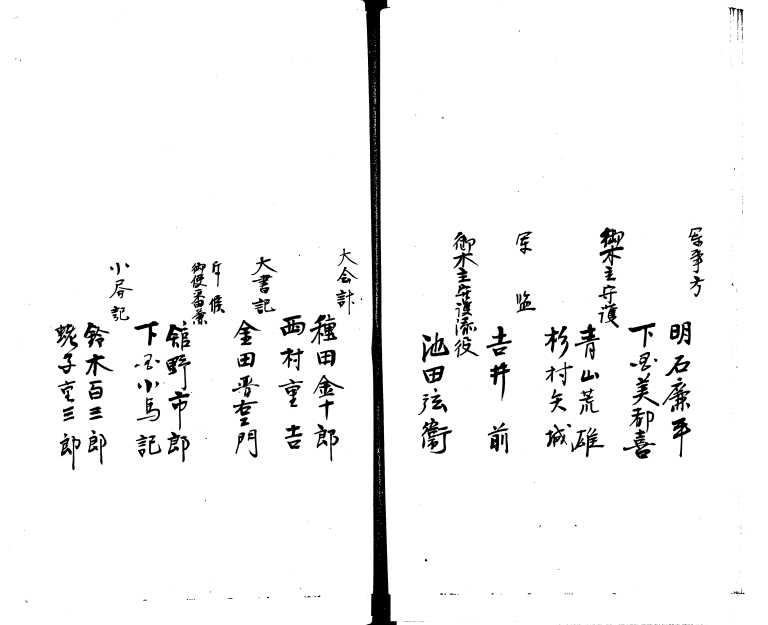 軍事方
明石廉平
下国美都喜
御木主守護
青山荒雄
杉村矢城
軍監
吉井前
御木主守護添役
池田弦衛
大会計
種田金十郎
西村重吉
大書記
金田晋左エ門
斥候
御使番兼
舘野市郎
下国小鳥記
小書記
鈴木百三郎
蛯子重三郎